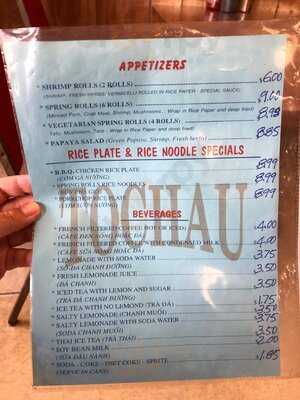 APPETIZERS
* SHRIMP ROLLS (2 ROLLS) $6.00
(SHRIMP, FRESH HERBS, VERMICELLI ROLLED IN RICE PAPER - SPECIAL SAUCE)
* SPRING ROLLS (6 ROLLS)
(Minced Pork, Crab Meat, Shrimp, Mushrooms... Wrap in Rice Paper and deep fried) 8.99
* VEGETARIAN SPRING ROLLS (4 ROLLS)
Tofu, Mushrooms, Taro - Wrap in Rice Paper and deep fried) 8.85
* PAPAYA SALAD (Green Papaya, Shrimp, Fresh herbs)
RICE PLATE & RICE NOODLE SPECIALS
* B.B.Q. CHICKEN RICE PLATE 8.99
(CƠM GÀ NƯỚNG)
* SPRING ROLLS RICE NOODLES 8.99
PORK RICE PLATE 8.99
TO CHAU
BEVERAGES
* FRENCH FILTERED COFFEE (HOT OR ICED) $4.00
(CAFE ĐEN NÓNG HOẶC ĐÁ)
* FRENCH FILTERED COFFEE WITH CONDENSED MILK $4.00
(CAFE SỮA NÓNG HOẶC ĐÁ)
* LEMONADE WITH SODA WATER 3.75
(SÔ-ĐA CHANH ĐƯỜNG)
* FRESH LEMONADE JUICE 3.50
(ĐÁ CHANH)
* ICED TEA WITH LEMON AND SUGAR 3.50
(TRÀ ĐÁ CHANH ĐƯỜNG)
* ICE TEA WITH NO LEMON (TRÀ ĐÁ) $1.75
* SALTY LEMONADE (CHANH MUỐI) 3.50
* SALTY LEMONADE WITH SODA WATER 3.75
(SODA CHANH MUỐI)
* THAI ICE TEA (TRÀ THÁI) 3.50
* SOY BEAN MILK 2.00
(SỮA ĐẬU NÀNH)
* SODA - COKE - DIET COKE - SPRITE $1.85